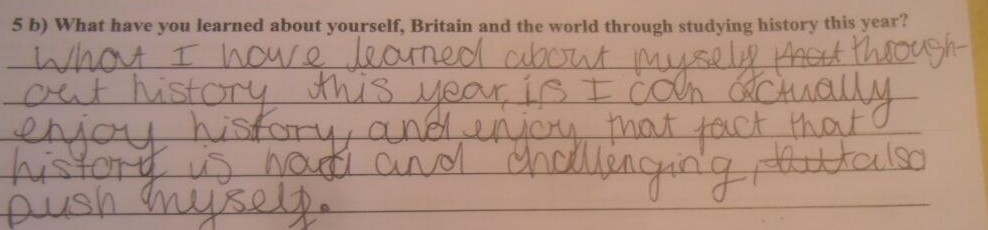 5 b) What have you learned about yourself, Britain and the world through studying history this year?
What I have learned about myself that through-
out history this year, is I can actually
enjoy history, and enjoy that fact that
history is hard and challenging, but also
push myself.